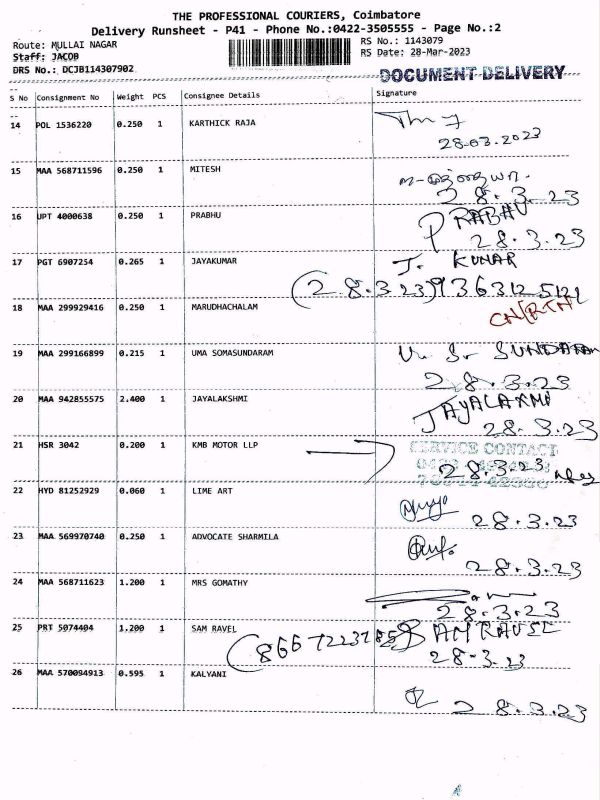 THE PROFESSIONAL COURIERS, Coimbatore
Delivery Runsheet - P41 - Phone No.:0422-3505555 - Page No.:2
Route: MULLAI NAGAR
RS No.: 1143079
Staff: JACOB
RS Date: 28-Mar-2023
DRS No.: DCJB114307902
DOCUMENT DELIVERY
S No Consignment No Weight PCS Consignee Details Signature
14 POL 1536220 0.250 1 KARTHICK RAJA
28-03.2023
15 MAA 568711596 0.250 1 MITESH
28.3.23
16 UPT 4000638 0.250 1 PRABHU PRABHU
28.3.23
17 PGT 6907254 0.265 1 JAYAKUMAR J. KUMAR
(28.3.23)
18 MAA 299929416 0.250 1 MARUDHACHALAM
19 MAA 299166899 0.215 1 UMA SOMASUNDARAM SUNDARAM
28.3.23
20 MAA 942855575 2.400 1 JAYALAKSHMI JAYALAXMI
28.3.23
21 HSR 3042 0.200 1 KMB MOTOR LLP SERVICE CONTACT
28.3.23
22 HYD 81252929 0.060 1 LIME ART
28.3.23
23 MAA 569970740 0.250 1 ADVOCATE SHARMILA
28.3.23
24 MAA 568711623 1.200 1 MRS GOMATHY
28.3.23
25 PRT 5074404 1.200 1 SAM RAVEL SAM RAVEL
28-3.23
26 MAA 570094913 0.595 1 KALYANI
28.3.23